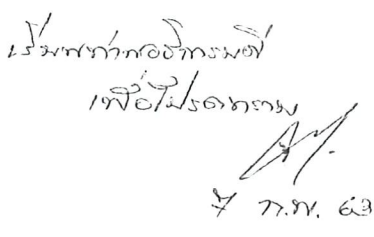 เรียนท่านอธิการบดี
เพื่อโปรดทราบ
7 ก.พ. 63